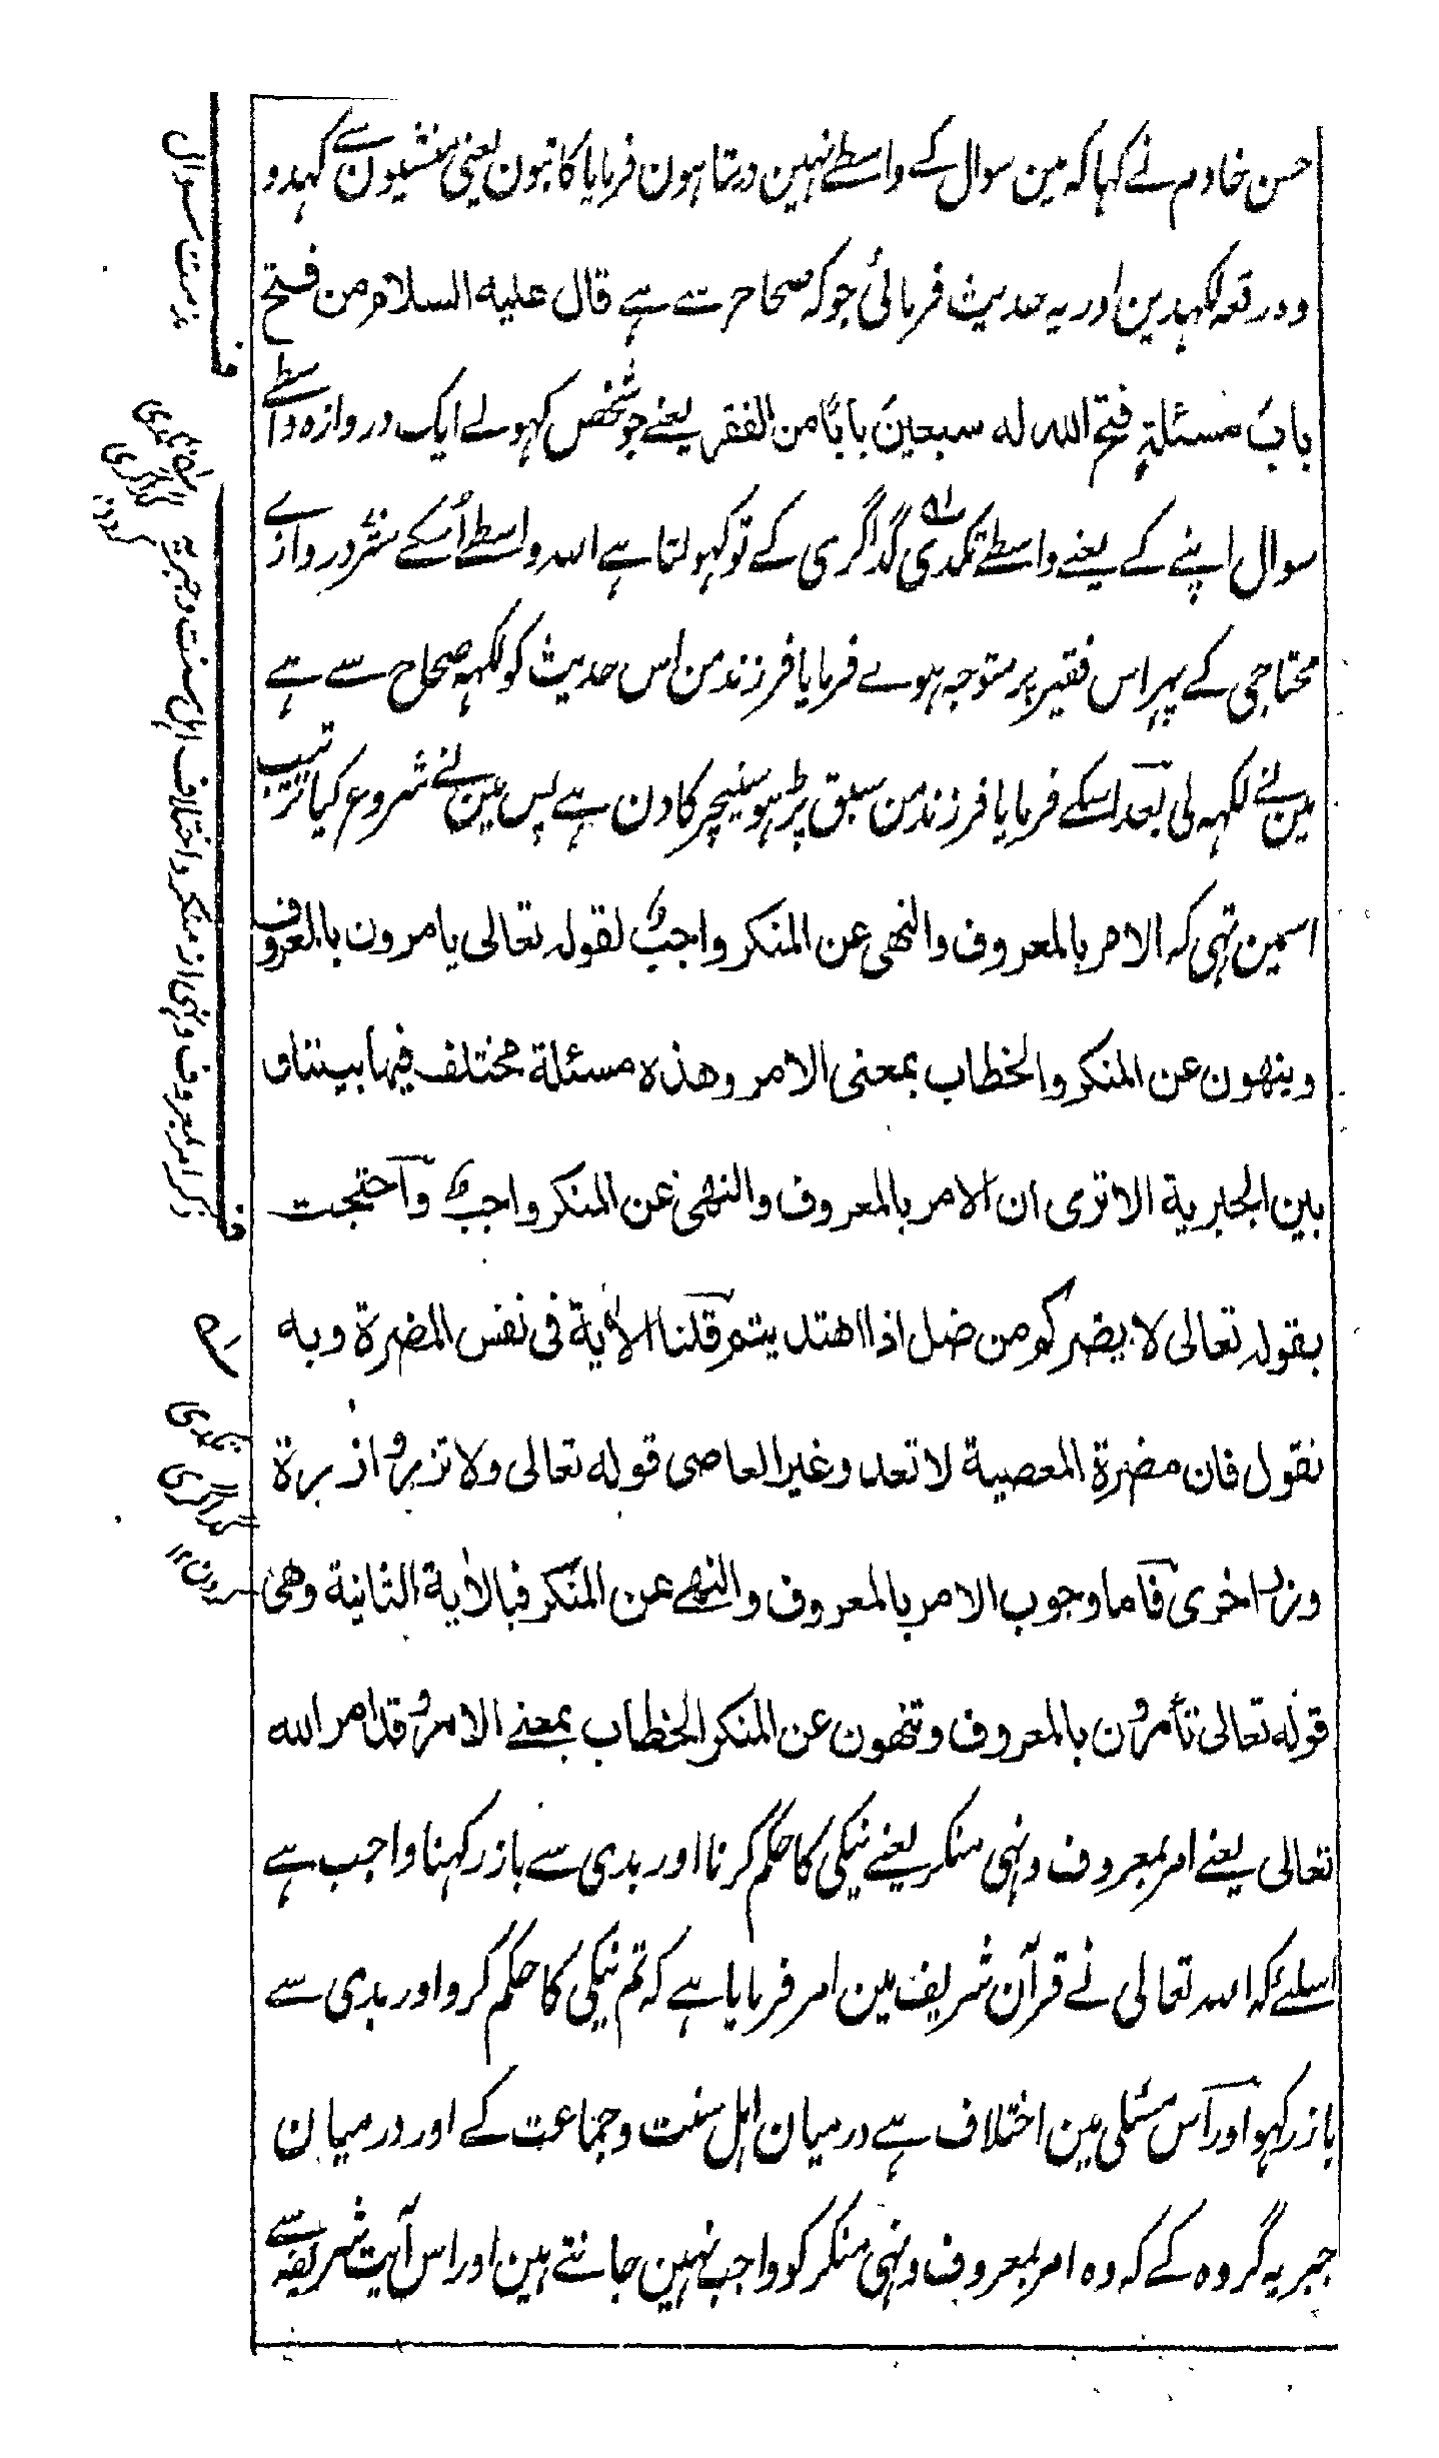 حسن خادم نے کہا کہ مین سوال کے واسطے نہین دیتا ہون فرمایا کاتبون یعنی منشیون سے کہدو
وہ رقعہ لکہدین اور یہ حدیث فرمائی جو کہ صحاح سے ہے قال علیه السلام من فتح
باب مسئلة فتح الله له سبعین بابا من الفقر یعنے جو شخص کہولے ایک دروازہ واسطے
سوال اپنے کے یعنے واسطے تکدی گداگری کے تو کہولتا ہے اللہ واسطے اُسکے ستر دروازے
محتاجی کے پہر اس فقیر پر متوجہ ہوے فرمایا فرزند من اس حدیث کو لکہہ صحاح سے ہے
مینے لکہہ لی بعد اسکے فرمایا فرزند من سبق پڑہو سنیچر کا دن ہے پس مین نے شروع کیا ترتیب
اسمین تہی کہ الامر بالمعروف والنهی عن المنکر واجب لقوله تعالی یامرون بالمعروف
وینهون عن المنکر والخطاب بمعنی الامر وهذه مسئلة مختلف فیها بیننا و
بین الجبریة الا تری ان الامر بالمعروف والنهی عن المنکر واجب واحتجت
بقوله تعالی لا یضرکم من ضل اذا اهتدیتم قلنا الأیة فی نفس المضرة وبه
نقول فان مضرة المعصیة لا تعدو غیر العاصی قوله تعالی ولا تزر وازرة
وزر اخری فاما وجوب الامر بالمعروف والنهے عن المنکر فبالأیة الثانیة وهی
قوله تعالی تأمرون بالمعروف وتنهون عن المنکر الخطاب بمعنے الامر وقد امر الله
تعالی یعنے امر بمعروف ونہی منکر یعنے نیکی کا حکم کرنا اور بدی سے باز رکہنا واجب ہے
اسلئے کہ اللہ تعالی نے قرآن شریف مین امر فرمایا ہے کہ تم نیکی کا حکم کرو اور بدی سے
باز رکہو اور اس مسئلی مین اختلاف ہے درمیان اہل سنت وجماعت کے اور درمیان
جبریہ گروہ کے کہ وہ امر بمعروف ونہی منکر کو واجب نہین جانتے ہین اور اس آیت شریفہ سے
فـــ
مذمت سوال
فـــ
ذکر امر بمعروف ونہی از منکر واختلاف اہل سنت وجبریہ
تکدی
گداگری
کردن ۱۲